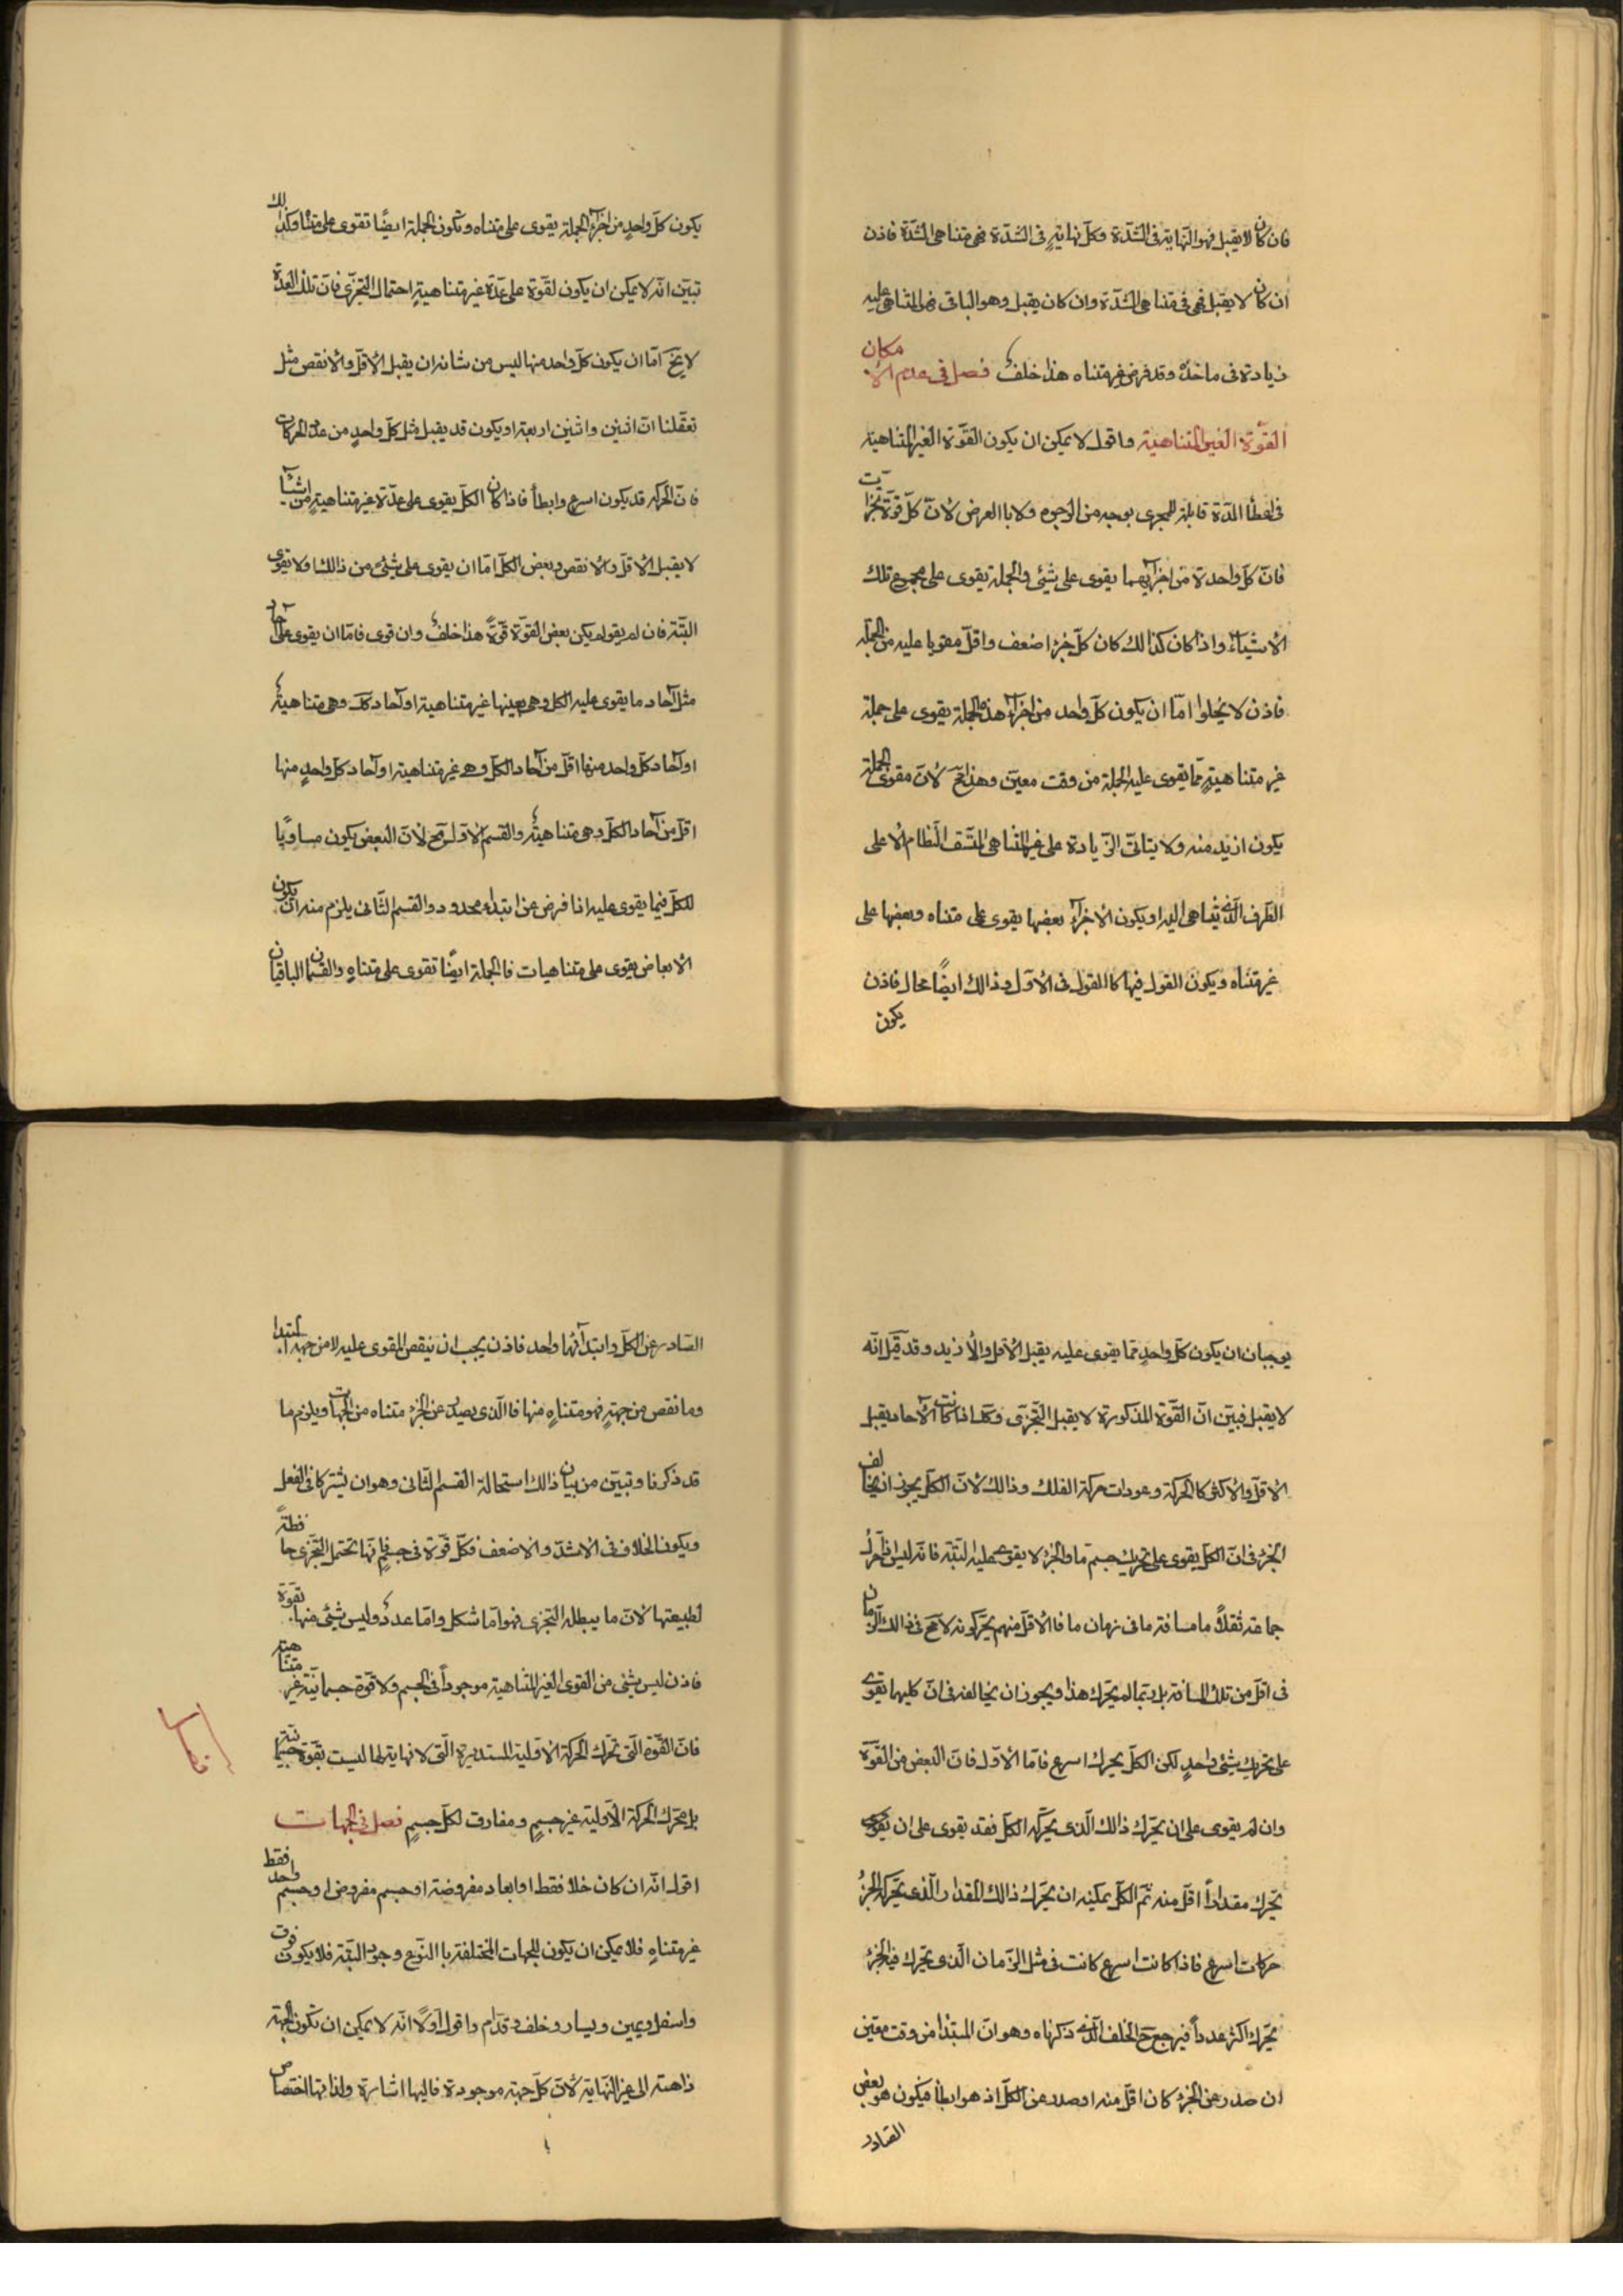 فان كان لا يقبل فهو النّهاية فى الشّدّة وكلّ نهايةٍ فى الشّدّة فهى متناهى الشّدّة فاذن
ان كان لا يقبل فهى فى متناهى الشّدّة وان كان يقبل وهو الباقى فهى المتناهى عليه
زيادة فى ماخذه وقد فرض غير متناه هذا خلف فصل فى عدم الامكان
القوّة الغير المتناهية واقول لا يمكن ان يكون القوّة الغير المتناهية
فى اعطا المدّة قابلة للتجزى بوجه من الوجوه ولا باالعرض لانّ كلّ قوّة تجزات
فانّ كل واحدة من اجزائهما يقوى على شئى والجملة يقوى على مجموع تلك
الاشياء واذا كان كذالك كان كلّ جزء اضعف واقلّ مقويا عليه من الجملة
فاذن لا يخلوا امّا ان يكون كلّ واحد من اجزاء هذه الجملة يقوى على جملة
غير متناهيةٍ ممّا يقوى عليه الجملة من وقت معين وهذا مح لانّ مقوى الجملة
يكون ازيد منه ولا يتاتى الزّيادة على غير المتناهى المتّسق النّظام الا على
الطّرف الّذى يتناهى اليه او يكون الاجزاء بعضها يقوى على متناه وبعضها على
غير متناه ويكون القول فيها كاالقول فى الاوّل وذالك ايضًا محال فاذن
يكون
يكون كلّ واحدٍ من اجزاء الجملة يقوى على متناه وتكون الجملة ايضًا تقوى على متناه وكذالك
تبيّن انّه لا يمكن ان يكون لقوّة على عدّة غير متناهيةٍ احتمال التجزّى فانّ تلك العدّة
لا يخ امّا ان يكون كلّ واحد منها ليس من شانه ان يقبل الاقلّ والانقص مثل
تعقّلنا انّ اثنين واثنين اربعة او يكون قد يقبل مثل كلّ واحدٍ من عدّة الحركات
فانّ الحركة قد يكون اسرع وابطأ فاذا كان الكلّ يقوى على عدّة غير متناهيةٍ من اشيآ
لا يقبل الاقلّ والانقص وبعض الكلّ امّا ان يقوى على شئى من ذالك اولا يقوى
البتّة فان لم يقو لم يكن بعض القوّة قوّةً هذا خلف وان قوى فامّا ان يقوى على آحاد
مثل آحاد ما يقوى عليه الكل وهى بعينها غير متناهية او آحاد كك وهى متناهية
او آحاد كلّ واحد منها اقلّ من آحاد الكلّ وهى غير متناهية او آحاد كلّ واحدٍ منها
اقلّ من آحاد الكلّ وهى متناهية والقسم الاوّل مح لانّ البعض يكون مساويًا
للكلّ فيما يقوى عليه اذا فرض من ابتداء محدود والقسم الثّانى يلزم منه ان يكون
الابعاض يقوى على متناهيات فاالجملة ايضًا تقوى على متناهٍ والقسمان الباقيان
يوجبان ان يكون كلّ واحدٍ ممّا يقوى عليه يقبل الاقل والازيد وقد قيل انّه
لا يقبل فبيّن انّ القوّة المذكورة لا يقبل التّجزّى وكك اذا كانت الآحاد يقبل
الاقلّ والاكثر كاالحركة وعودات حركة الفلك وذالك لانّ الكلّ يجوز ان يخالف
الجزء فى انّ الكلّ يقوى على تحريك جسم ما والجزء لا يقوى عليه البتّة فانّه ليس اذا حرّك
جماعة ثقلًا ما مسافة ما فى زمان ما فاالاقلّ منهم يحرّكونه لا مح فى ذالك الزّمان
فى اقلّ من تلك المسافة بل ربّما لم يحرّك هذا ويجوز ان يخالفه فى انّ كليهما يقوى
على تحريك شئى واحدٍ لكن الكلّ يحرّك اسرع فامّا الاوّل فانّ البعض من القوّة
وان لم يقوى على ان يحرّك ذالك الّذى يحرّكه الكلّ فقد يقوى على ان يقوى
يحرّك مقداراً اقلّ منه ثمّ الكلّ يمكنه ان يحرّك ذالك المقدار الّذى يحرّكه الجزء
حركات اسرع فاذا كانت اسرع كانت فى مثل الزّمان الّذى يحرّك فيه الجزء
يحرّك اكثر عدداً فيرجع ح الخلف الّذى ذكرناه وهو انّ المبتدا من وقت معيّن
ان صدر عن الجزء كان اقلّ منه او صدر عن الكلّ اذ هو ابطأ فيكون هو بعض
الصّادر
الصّادر عن الكلّ وابتدآئهما واحد فاذن يجب ان ينقص المقوى عليه لا من جهة المبتدا
وما نقص من جهةٍ فهو متناهٍ منها فاالّذى يصدر عن الجزء متناه من الجهات ويلزم ما
قد ذكرنا وتبيّن من بيان ذالك استحالة القسم الثّانى وهو ان يشتركا فى الفعل
ويكون الخلاف فى الاشدّ والاضعف فكلّ قوّة فى جسمٍ فانّها تحتمل التّجزى حافظةً
لطبيعتها لانّ ما يبطله التجزى فهو امّا شكل وامّا عدد وليس شئى منها بقوّة
فاذن ليس شئى من القوى الغير المتناهية موجوداً فى الجسم ولا قوّة جسمانيّة غير متناهية
فانّ القوّة الّتى تحرّك الحركة الاوّلية المستديرة الّتى لا نهاية لها ليست بقوّة جسمانيّة
بل محرّك الحركة الاوّلية غير جسمٍ ومفارق لكلّ جسمٍ فصل فى الجهات
اقول انّه ان كان خلاء فقط او ابعاد مفروضة او جسم مفروض او جسم واحد فقط
غير متناهٍ فلا يمكن ان يكون للجهات المختلفة باالنّوع وجود البتّة فلا يكون فوق
واسفل ويمين ويسار وخلف وقدّام واقول اوّلًا انّه لا يمكن ان تكون الجهة
ذاهبة الى غير النّهاية لانّ كلّ جهة موجودة فاليها اشارة ولذاتها اختصاص